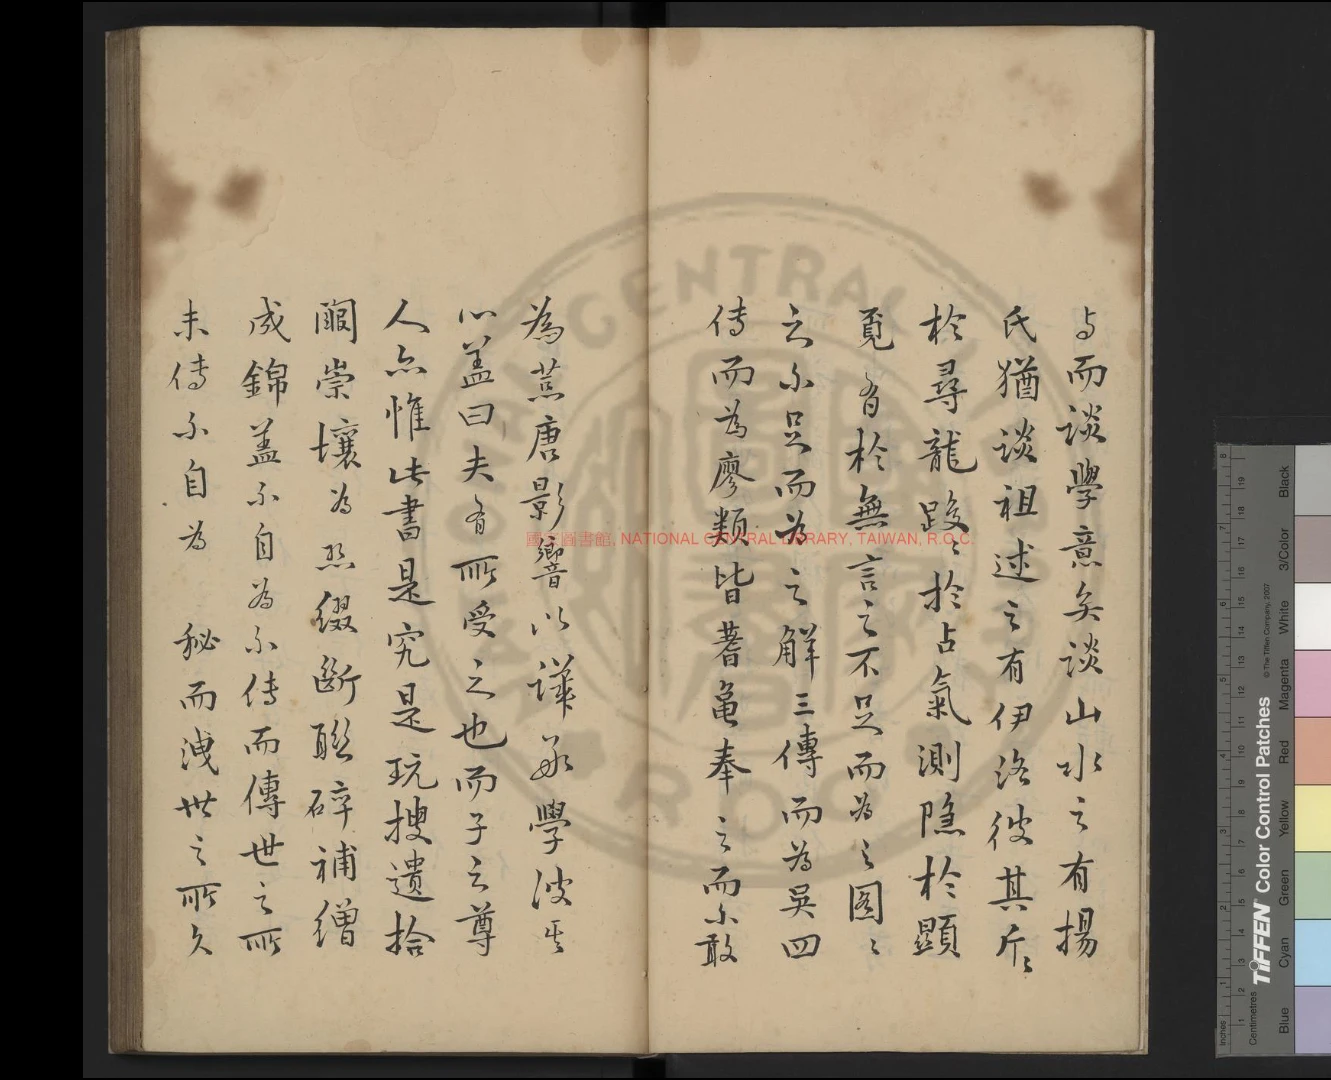 与而談學意矣談山水之有揚
氏猶談祖述之有伊洛彼其斤〻
於尋龍踐〻於占氣測隐於顯
覓有於無言之不足而為之圖〻
之不足而為之解三傳而為吳四
傳而為廖類皆蓍龜奉之而不敢
為荒唐影響以譁學
心盖曰夫有所受之也而子之尊
人亦惟此書是究是玩搜遺拾
闕崇壤為綴斷聯碎補繒
成錦盖不自為不傳而傳世之所
未傳不自為秘而洩世之所久
國家圖書館, NATIONAL CENTRAL LIBRARY, TAIWAN, R.O.C.
CENTRAL
ROC
TIFFEN Color Control Patches
© The Tiffen Company, 2007
Inches
Centimetres
Blue Cyan Green Yellow Red Magenta White 3/Color Black